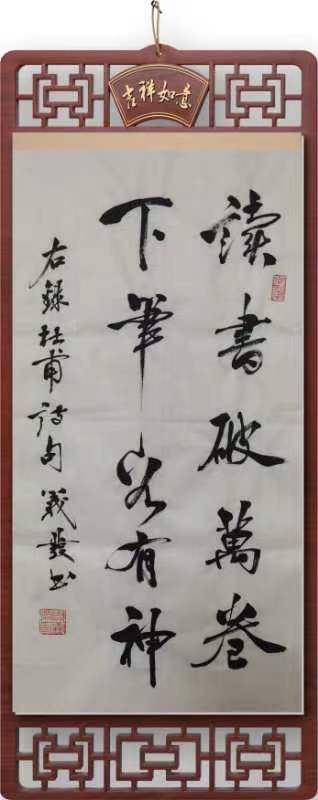 吉祥如意
讀書破萬卷
下筆如有神
右錄杜甫詩句 義發书